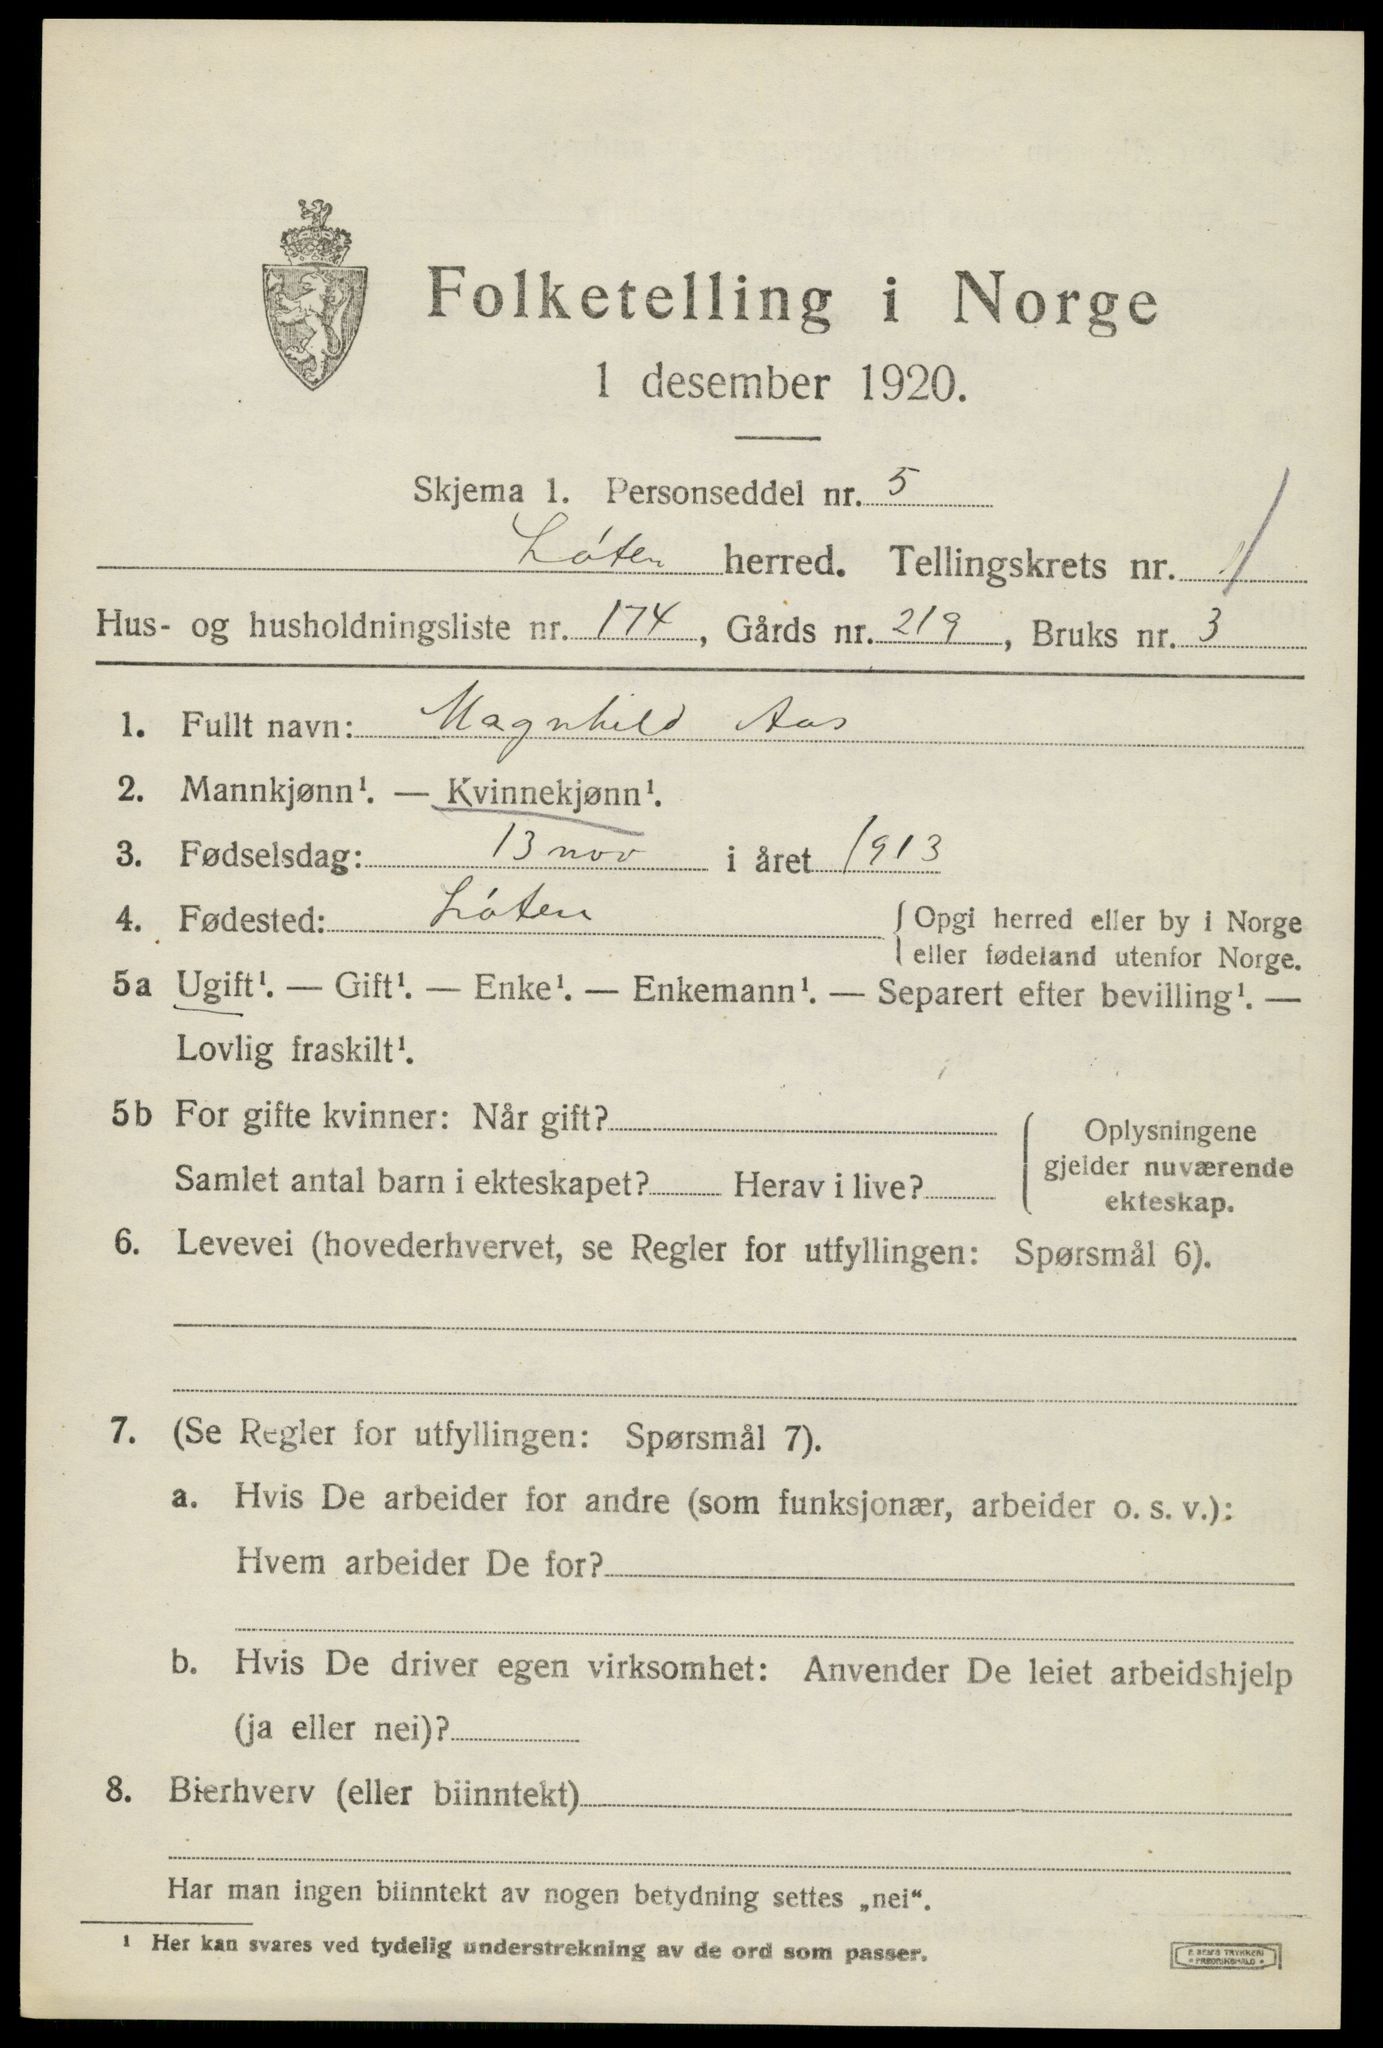 Folketelling i Norge
1 desember 1920.
Skjema 1. Personseddel nr. 5
Løten herred. Tellingskrets nr.
Hus- og husholdningsliste nr. 174, Gårds nr. 219, Bruks nr. 3
1. Fullt navn: Magnhild Aas
2. Mannkjønn¹. — Kvinnekjønn¹.
3. Fødselsdag: 13 nov i året 1913
4. Fødested: Løten { Opgi herred eller by i Norge
eller fødeland utenfor Norge.
5a Ugift¹. — Gift¹. — Enke¹. — Enkemann¹. — Separert efter bevilling¹. —
Lovlig fraskilt¹.
5b For gifte kvinner: Når gift?
Samlet antal barn i ekteskapet? Herav i live?
{ Oplysningene
gjelder nuværende
ekteskap.
6. Levevei (hovederhvervet, se Regler for utfyllingen: Spørsmål 6).
7. (Se Regler for utfyllingen: Spørsmål 7).
a. Hvis De arbeider for andre (som funksjonær, arbeider o. s. v.):
Hvem arbeider De for?
b. Hvis De driver egen virksomhet: Anvender De leiet arbeidshjelp
(ja eller nei)?
8. Bierhverv (eller biinntekt)
Har man ingen biinntekt av nogen betydning settes „nei“.
¹ Her kan svares ved tydelig understrekning av de ord som passer.